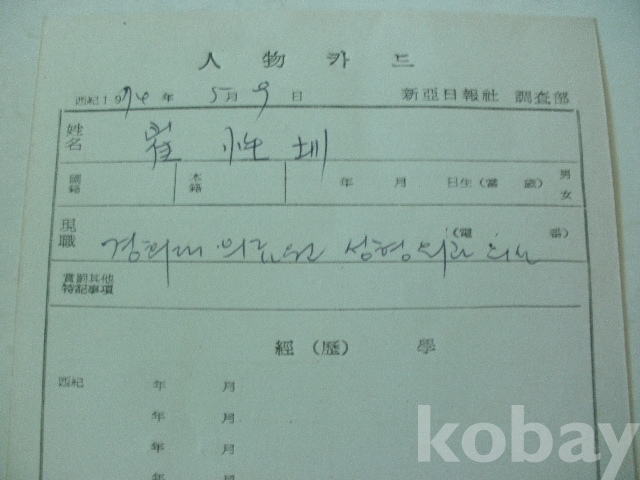 人物카드
西紀1974年 5月 9日 新亞日報社 調査部
姓名 崔 性
國籍 本籍 年 月 日生(當 歲) 男女
現職 (電 番)
경희대 의료원 성형외과 의사
賞罰其他特記事項
經(歷) 學
西紀 年 月
年 月
年 月
年 月
kobay